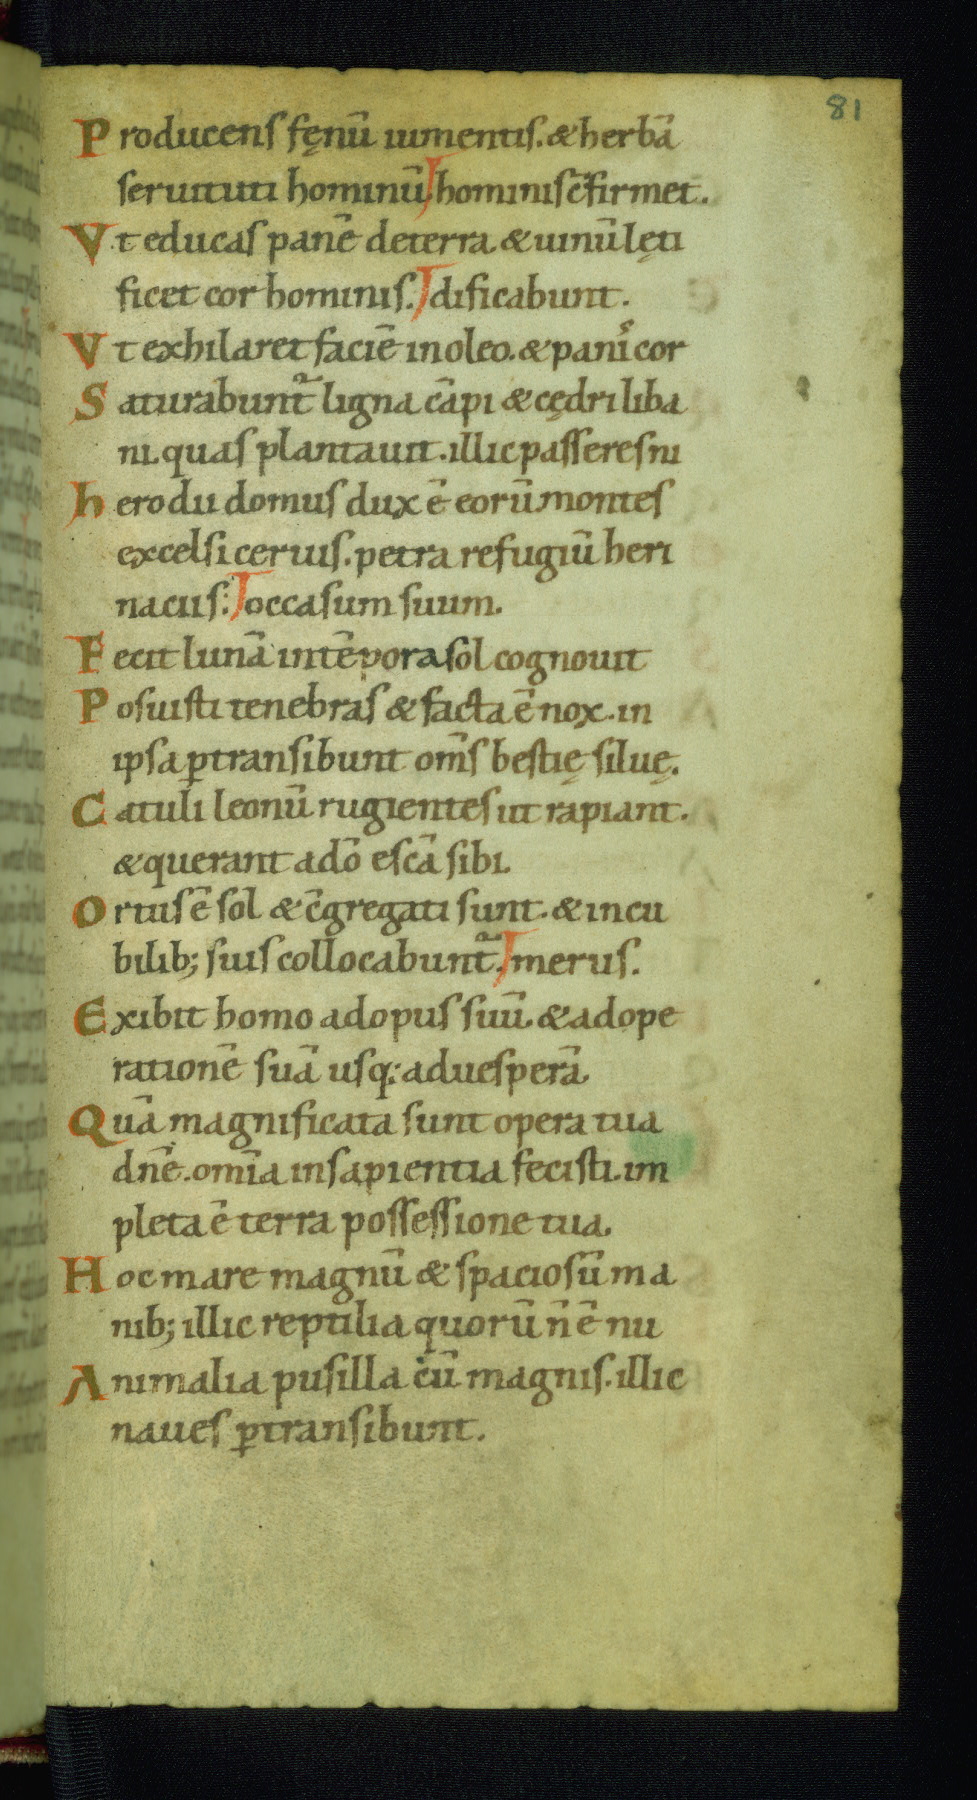 81
Producens fęnū iumentis. & herbā
seruituti hominū hominis c̄firmet.
Vt educas panē deterra & uinū lęti
ficet cor hominis. dificabunt.
Vt exhilaret faciē inoleo. & panis cor
Saturabunt᷑ ligna cāpi & cędri liba
ni. quas plantauit. illic passeres ni
herodii domus dux ē eorū montes
excelsi ceruis. petra refugiū heri
naciis: occasum suum.
Fecit lunā intēpora sol cognouit
Posuisti tenebras & facta ē nox. in
ipsa ꝑtransibunt om̄s bestię siluę.
Catuli leonū rugientes ut rapiant.
& querant adō escā sibi.
Ortus ē sol & c̄gregati sunt. & incu
bilib; suis collocabunt᷑. merus.
Exibit homo adopus suū. & adope
rationē suā usq; aduesperā
Quā magnificata sunt opera tua
dn̄e. om̄ia insapientia fecisti. im
pleta ē terra possessione tua.
Hoc mare magnū & spaciosū ma
nib; illic reptilia quorū n̄ ē nu
Animalia pusilla cū magnis. illic
naues ꝑtransibunt.